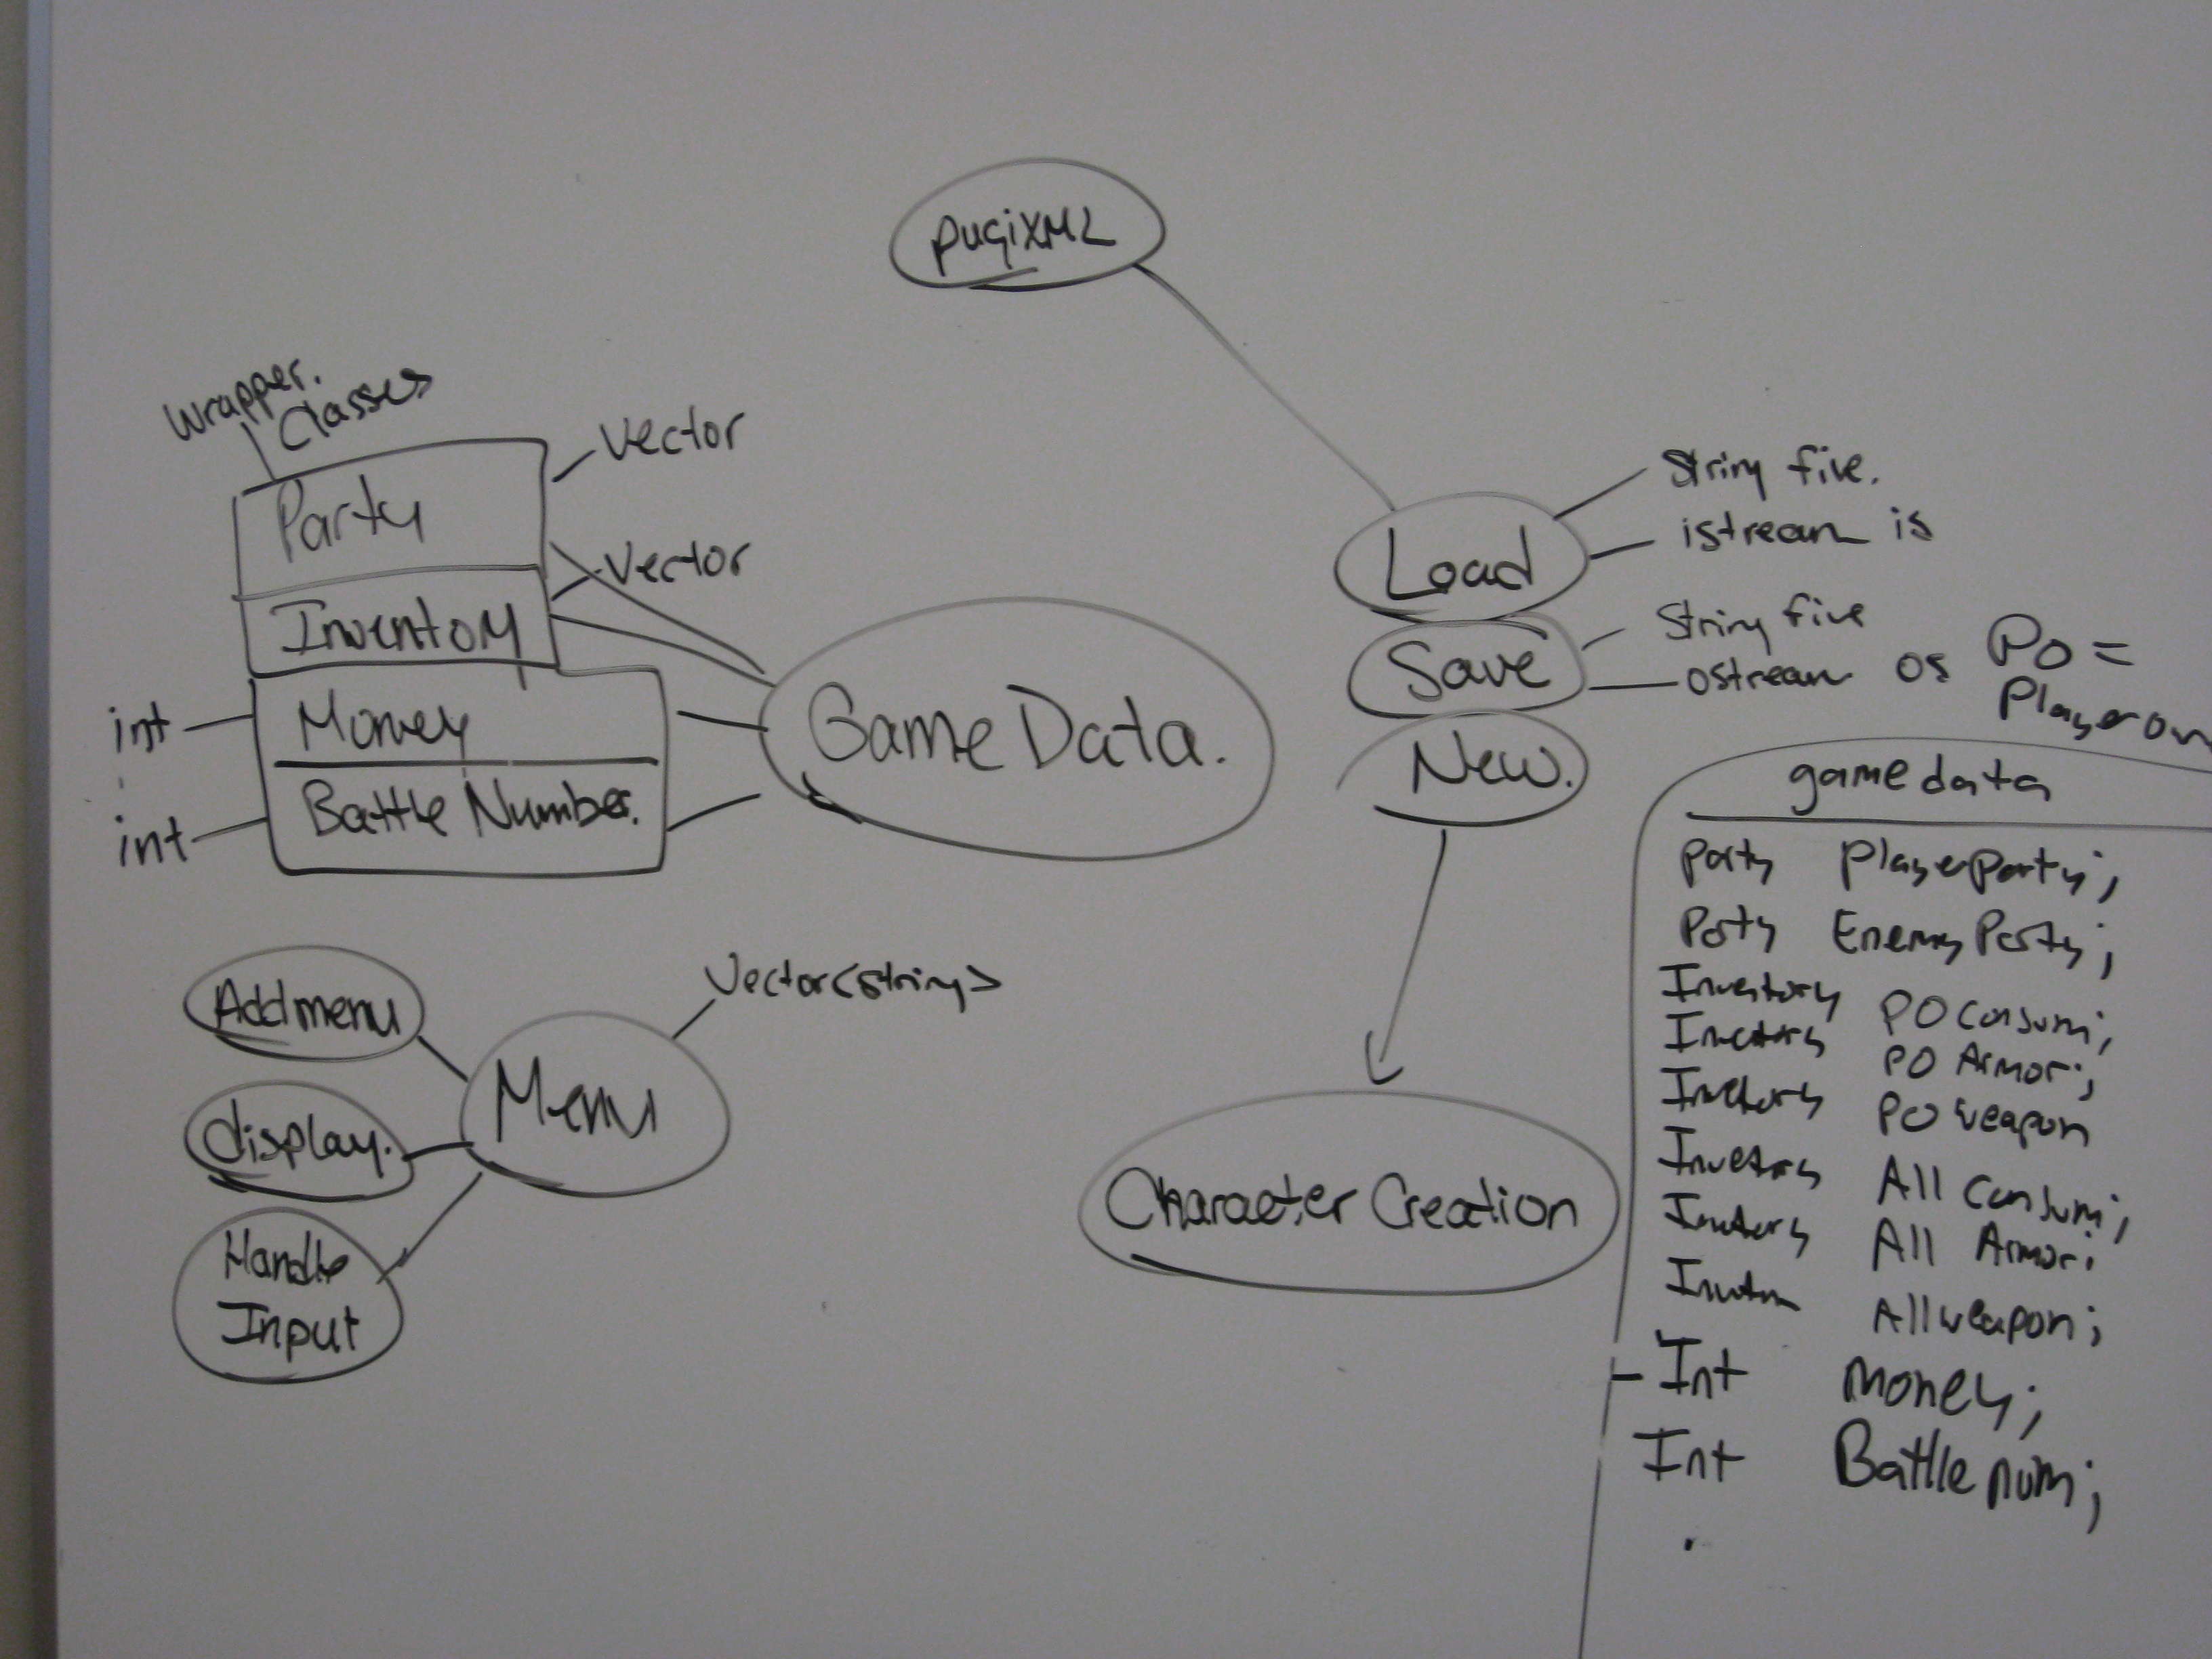 pugiXML
Wrapper.
Classes
Vector
Party
Vector
Inventory
int
Money
int
Battle Number.
Game Data.
Load
String file.
istream is
Save
String file
ostream os
New.
PO =
Player own
Character Creation
Add menu
display.
Handle
Input
Menu
Vector<string>
game data
Party Playerparty;
Party Enemy Party;
Inventory PO Consum;
Inventory PO Armor;
Inventory PO weapon
Inventory All Consum;
Inventory All Armor;
Inventory All weapon;
- Int money;
Int Battle num;